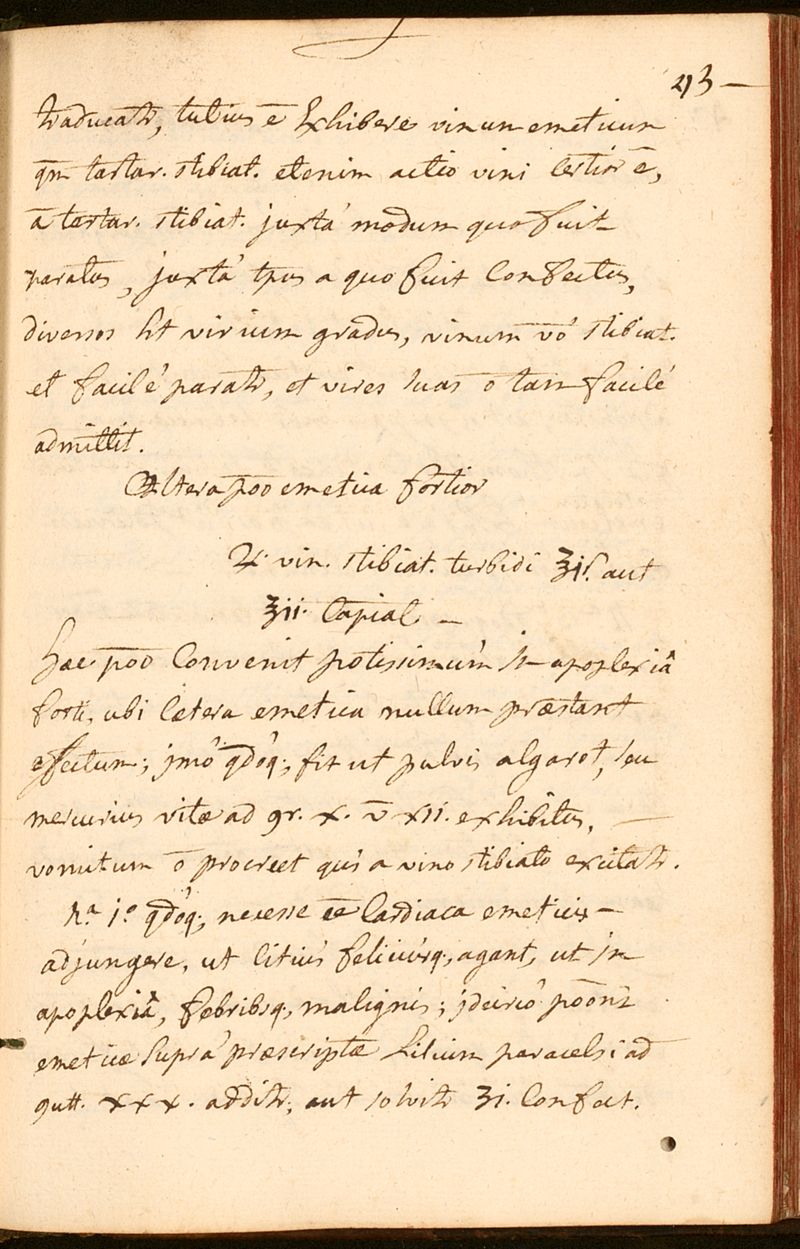 43 —
traducatr, tutius ē Exhibere vinum emeticum
qm̄ tartar. stibiat. etenim actio vini Certior ē,
ā tartar. stibiat. juxtá modum quo fuit
paratus, juxtá tpus a quo fuit Confectus,
diversos ht virium gradus, vinum vó stibiat.
et facilé paratr, et vires suas ō tam facilé
admittit.
Altera poō emetica fortior
♃ vin. stibiat. turbidi ʒiſ. aut
ʒii. Capiat —
hæc poō Convenit potissimúm in apoplexiâ
forti, ubi Cætera emetica nullum præstant
effectum; jmó qdóq; fit ut pulvis algarot, seu
mercurius vitæ ad gr. x. v̄ xii. exhibitus, —
vomitum ō procreet qui a vino stibiato excitatr.
Nª 1º qdóq; necesse eē Cardiaca emeticis —
adjungere, ut Citiús feliciúsq; agant, ut in
apoplexiâ, febribsq; malignis; jdcircó
emeticæ Suprá præscriptæ Lilium paracelsi ad
gutt. xxx. additr; aut solvitr ʒi. Confect.